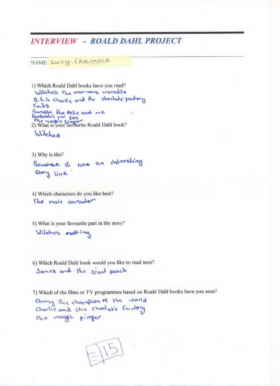 INTERVIEW - ROALD DAHL PROJECT
NAME: Lucy
1) Which Roald Dahl books have you read?
Witches the
B.F.G charlie and the chocolate factory
Twits
the magic finger
2) What is your favourite Roald Dahl book?
Witches
3) Why is this?
it was an interesting
Story line
4) Which characters do you like best?
The main
5) What is your favourite part in the story?
Witches meeting
6) Which Roald Dahl book would you like to read next?
James and the giant peach
7) Which of the films or TV programmes based on Roald Dahl books have you seen?
Danny the champion of the world
Charlie and the chocolate factory
the magic finger
15